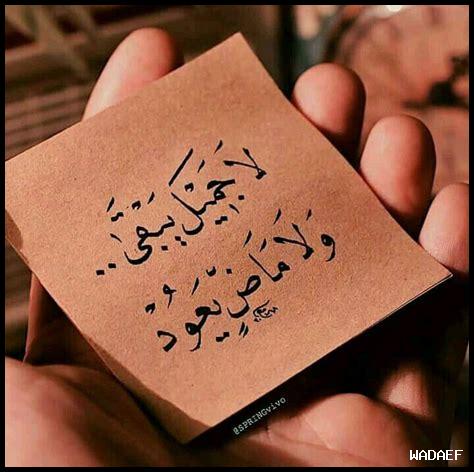 لَا جَمِيْل يَبْقَىٰ ..
وَلَا مَاضٍ يَعُودُ
@SPRINGvivo
WADAEF